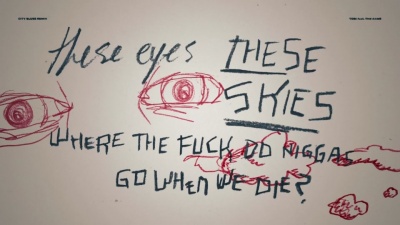 these eyes THESE
SKIES
WHERE THE FUCK DO NIGGAS
GO WHEN WE DIE?